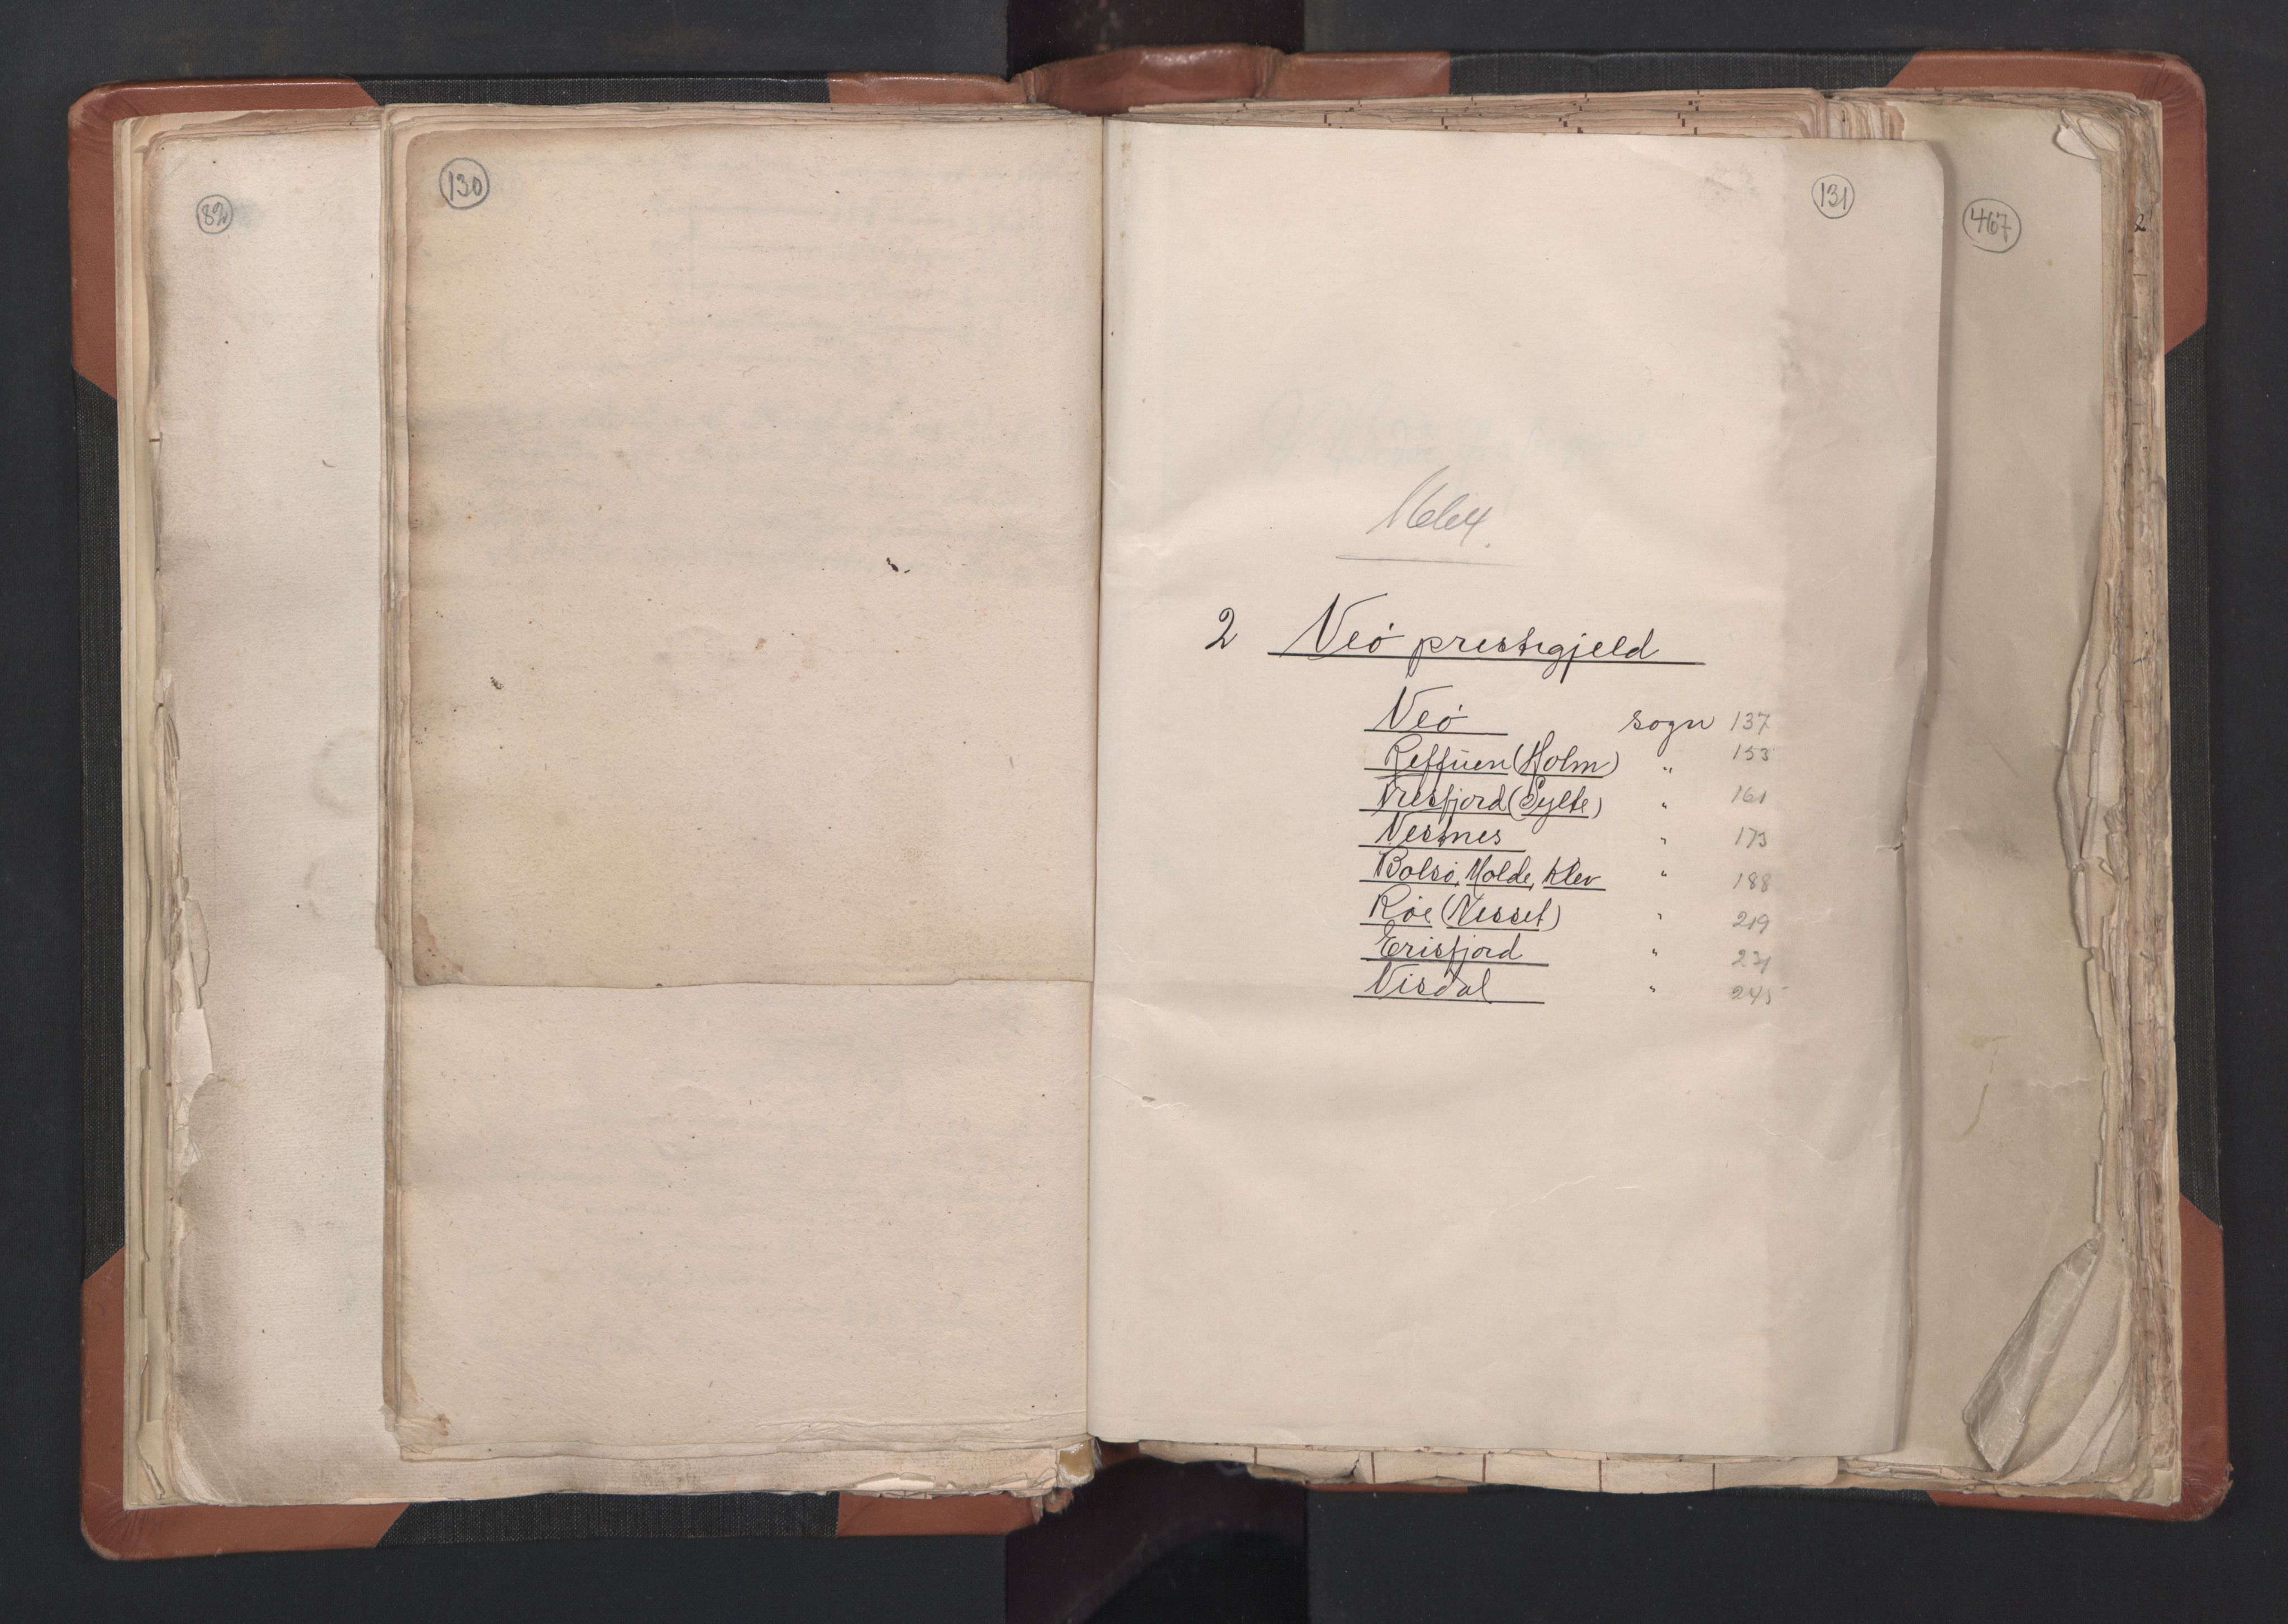 82
130
131
467
2
1664.
2 Veö prestegjeld
Veö sogn 137
Reffuen (Holm) " 153
Vresfjord (Sylte) " 161
Vestnes " 173
Bolsö, Molde, Klev " 188
Röe (Nesset) " 219
Erisfjord " 231
Visdal " 245